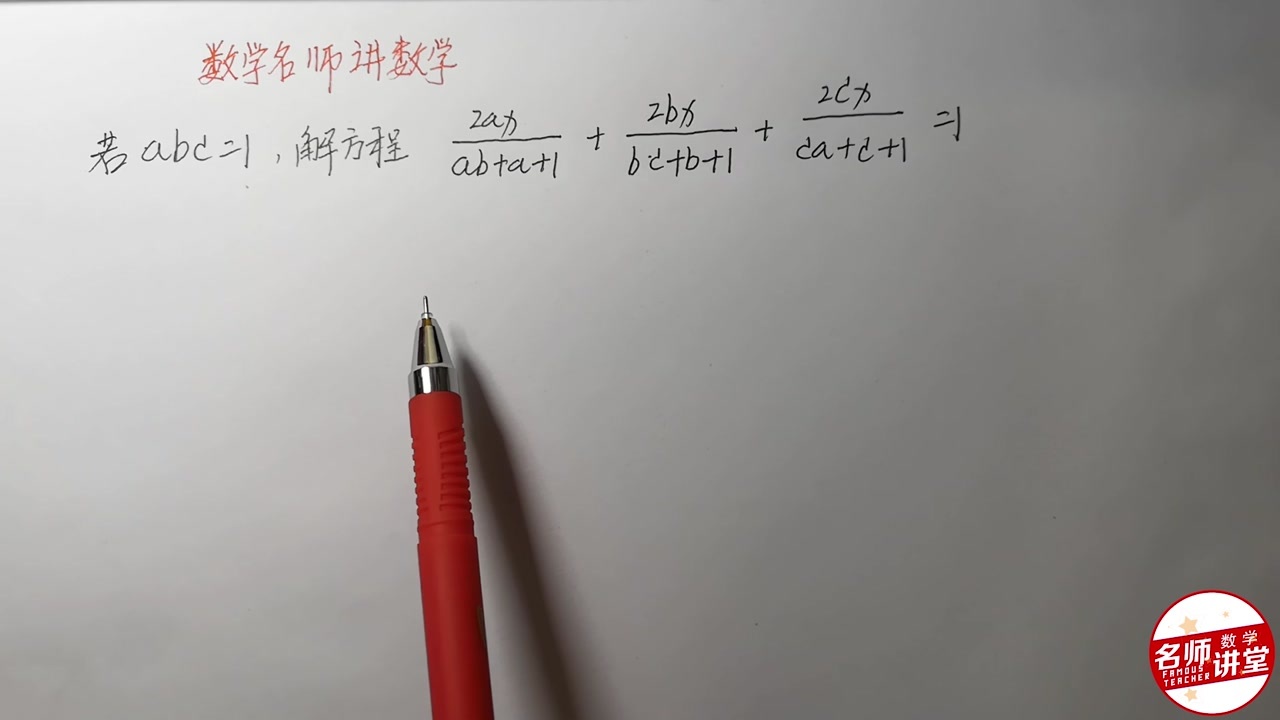 数学名师讲数学
若abc=1,解方程 2ax/(ab+a+1) + 2bx/(bc+b+1) + 2cx/(ca+c+1) =1
名师数学讲堂
FAMOUS
TEACHER